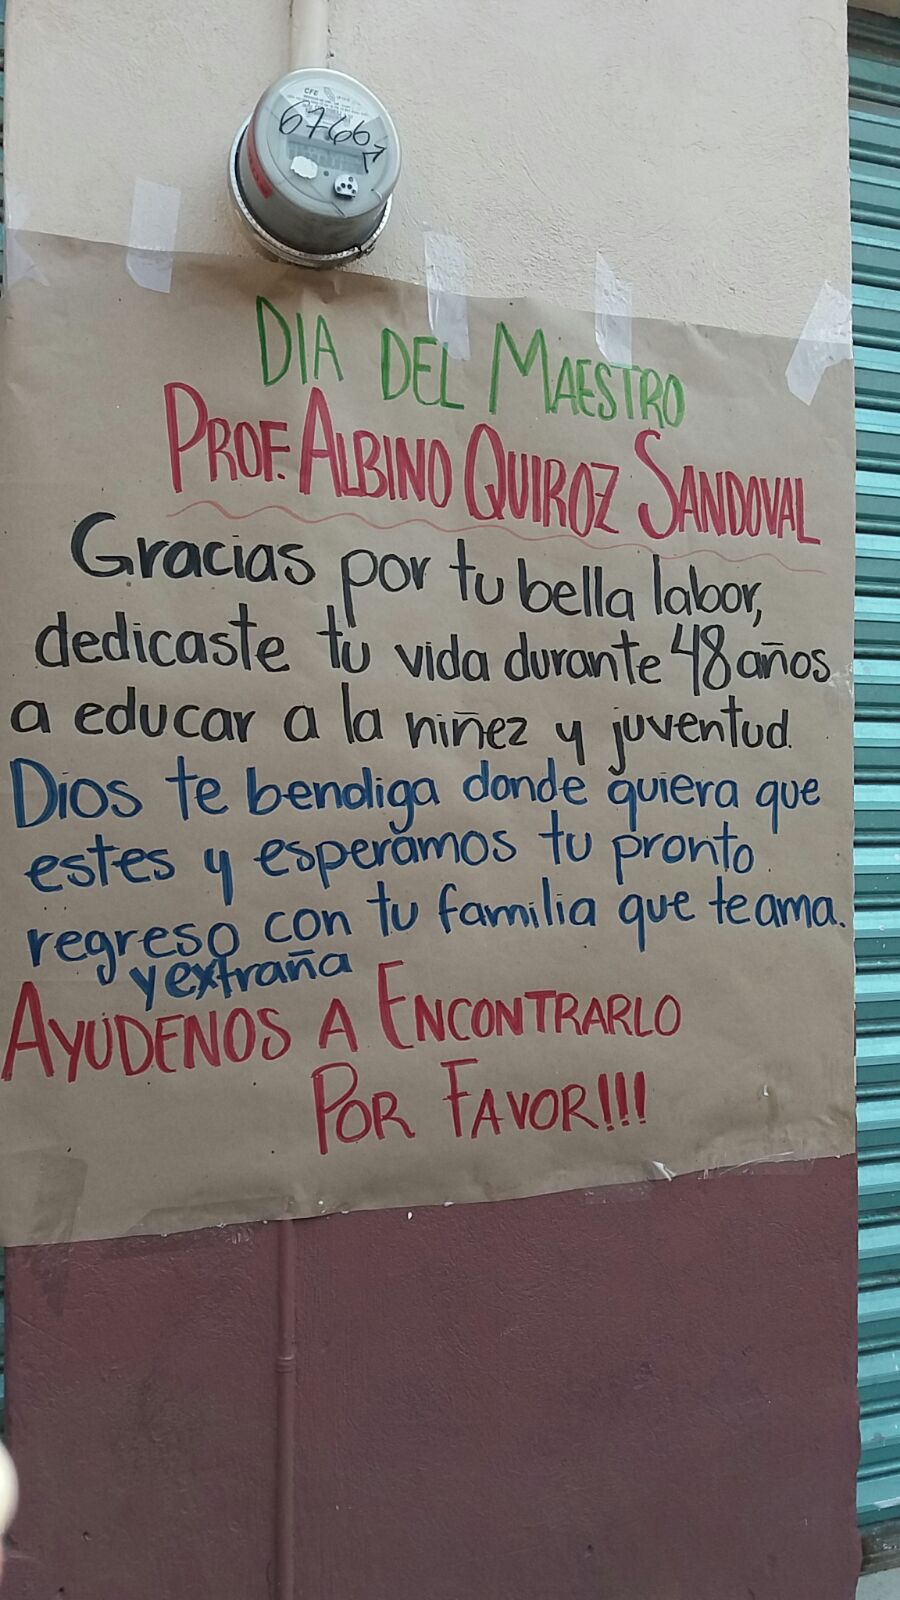 CFE
6766
DIA DEL MAESTRO
PROF. ALBINO QUIROZ SANDOVAL
Gracias por tu bella labor,
dedicaste tu vida durante 48 años
a educar a la niñez y juventud.
Dios te bendiga donde quiera que
estes y esperamos tu pronto
regreso con tu familia que te ama.
y extraña
AYÚDENOS A ENCONTRARLO
POR FAVOR!!!